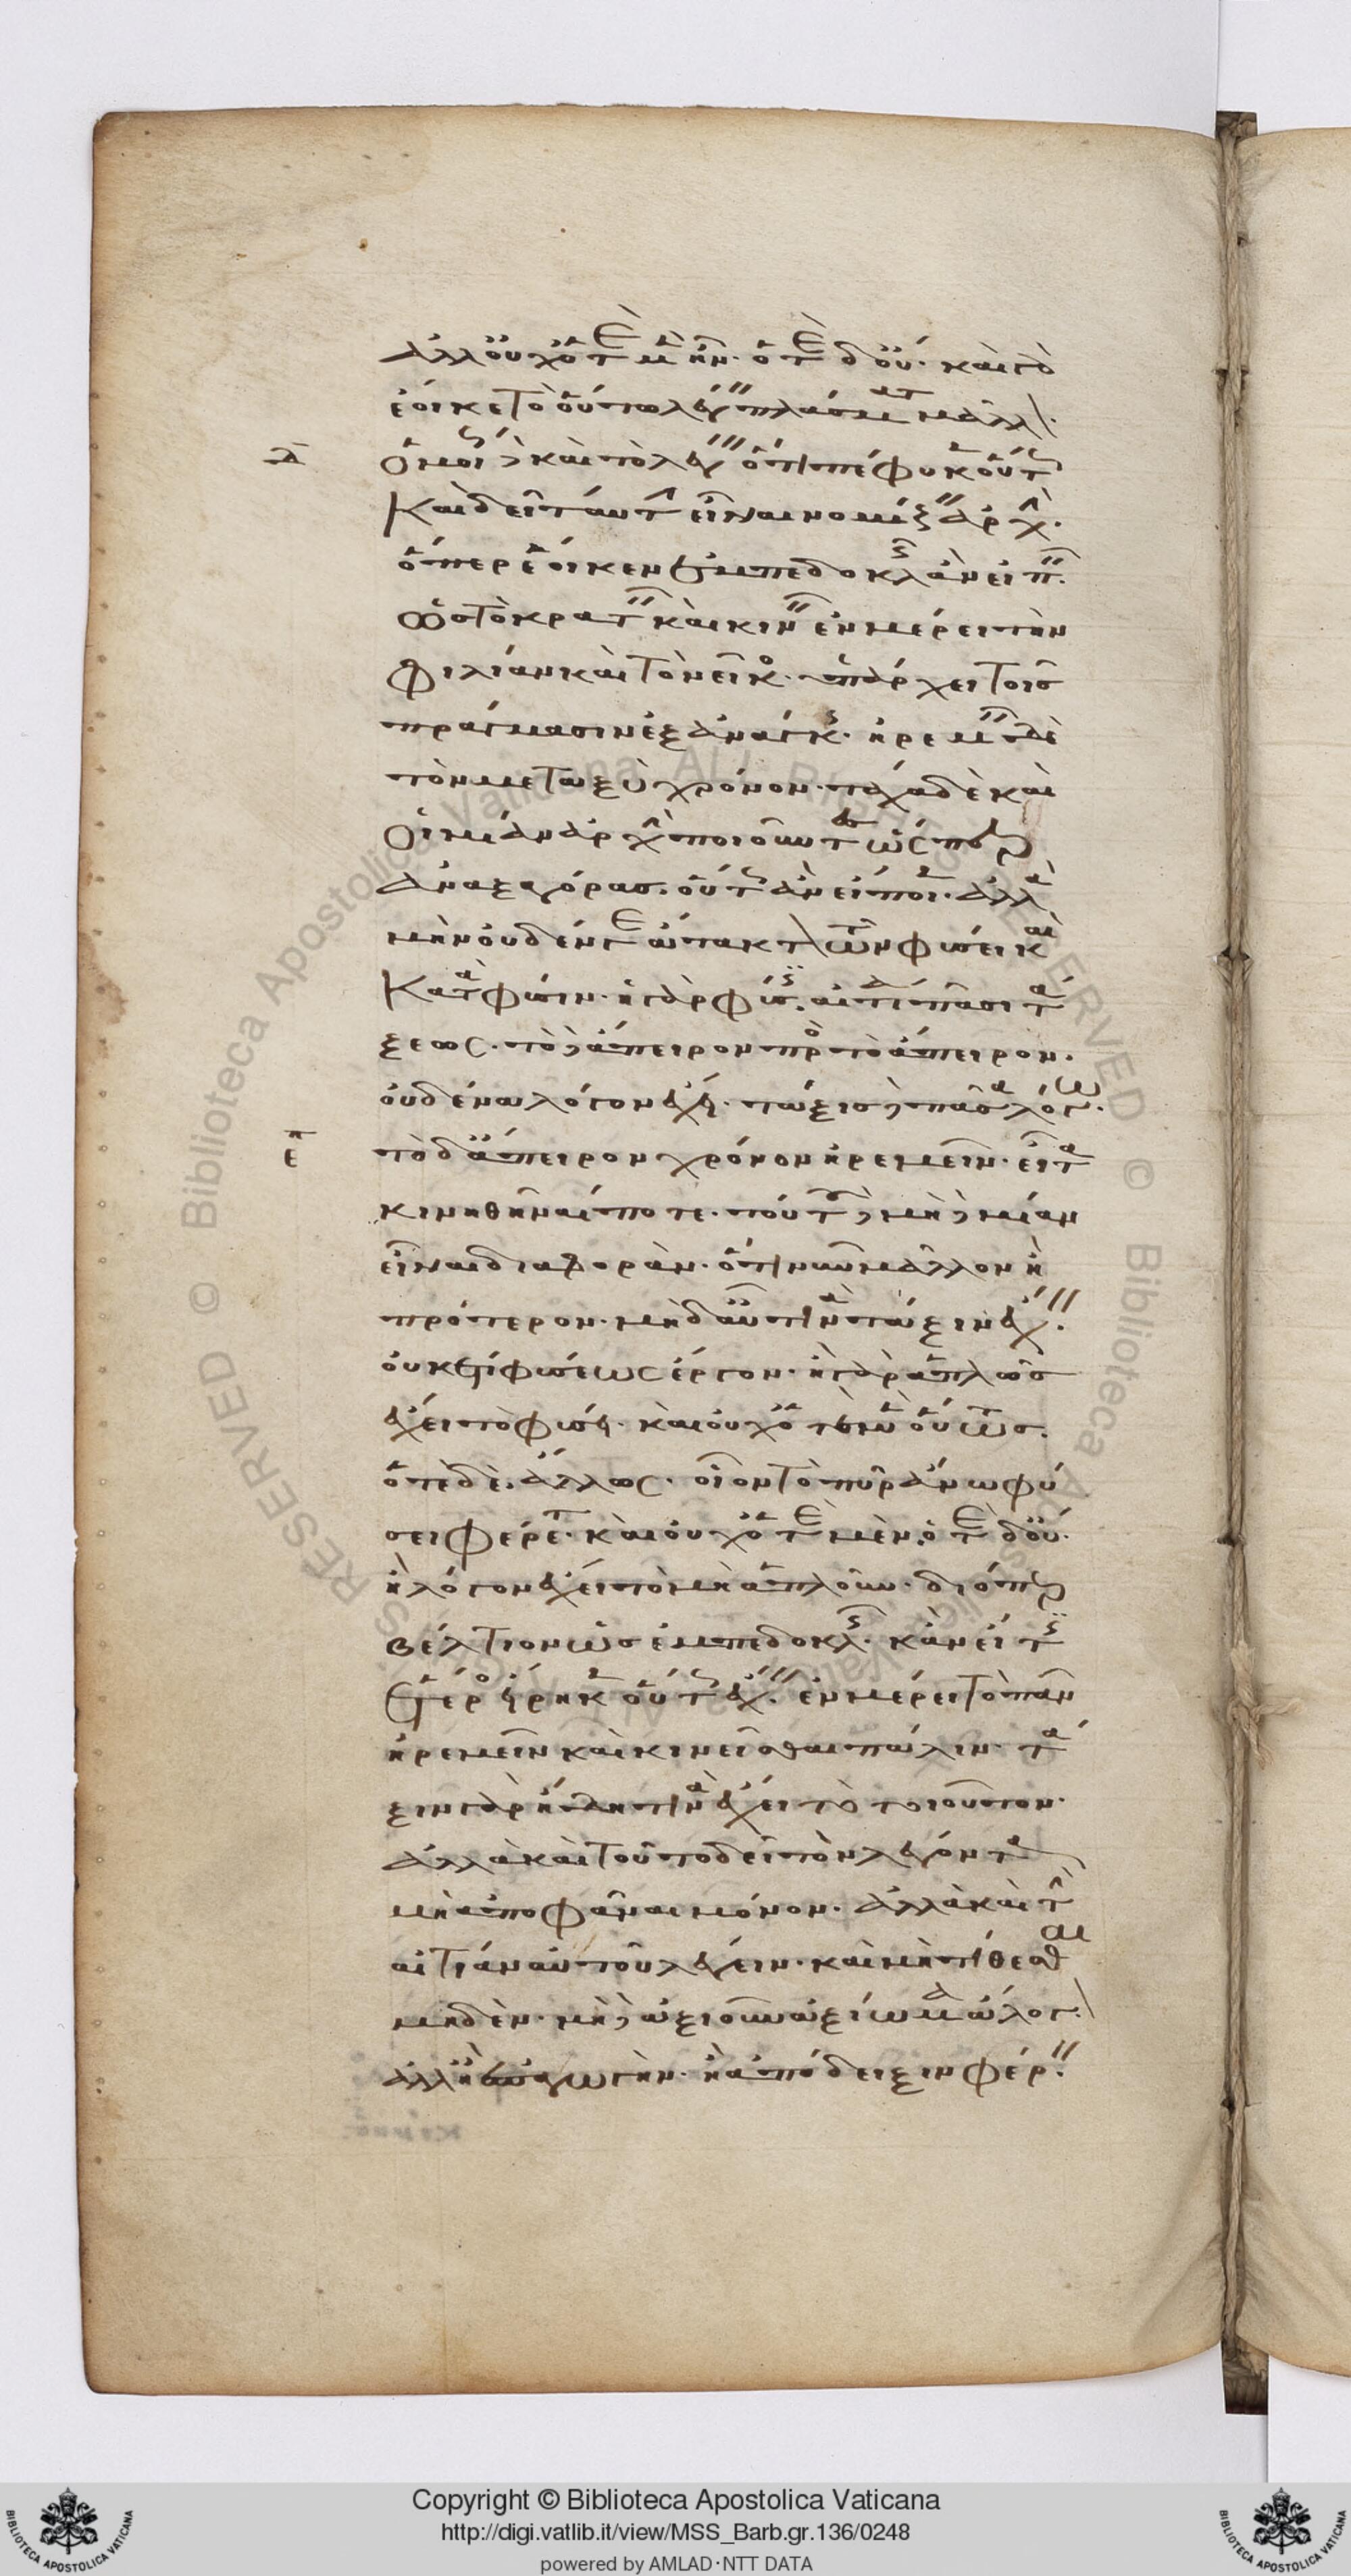 ἀλλ' οὐχ ὁτὲ μὲν ἦν· ὁτὲ δ' οὔ· καὶ γὰρ
ἔοικε τὸ οὕτω λέγειν πλάσματι μᾶλλον·
ὁμοίως δὲ καὶ τὸ λέγειν ὅτι πέφυκεν οὕτως
καὶ δεῖ ταύτην εἶναι νομίζειν ἀρχήν·
ὅπερ ἔοικεν ἐμπεδοκλῆς ἂν εἰπεῖν·
ὡς τὸ κρατεῖν καὶ κινεῖν ἐν μέρει τὴν
φιλίαν καὶ τὸ νεῖκος· ὑπάρχει τοῖς
πράγμασιν ἐξ ἀνάγκης· ἠρεμεῖν δὲ
τὸν μεταξὺ χρόνον· τάχα δὲ καὶ
οἱ μίαν ἀρχὴν ποιοῦντες ὥσπερ
ἀναξαγόρας· οὕτως ἂν εἴποιεν· ἀλλὰ
μὴν οὐδέν γε ἄτακτον τῶν φύσει καὶ
κατὰ φύσιν· ἡ γὰρ φύσις αἰτία πᾶσι τά
ξεως· τὸ δὲ ἄπειρον πρὸς τὸ ἄπειρον·
οὐδένα λόγον ἔχει· τάξις δὲ πᾶσα λόγος·
τὸ δ' ἄπειρον χρόνον ἠρεμεῖν· εἶτα
κινηθῆναί ποτε· τούτου δὲ μὴ δὲ μίαν
εἶναι διαφορὰν· ὅτι νῦν μᾶλλον ἢ
πρότερον· μὴ δ' αὖ τινὰ τάξιν ἔχειν·
οὐκέτι φύσεως ἔργον· ἢ γὰρ ἁπλῶς
ἔχει τὸ φύσει· καὶ οὐχ ὁτὲ μὲν οὕτως·
ὁτὲ δὲ ἄλλως· οἷον τὸ πῦρ ἄνω φύ
σει φέρεται· καὶ οὐχ ὁτὲ μὲν· ὁτὲ δ' οὔ·
ἢ λόγον ἔχει τὸ μὴ ἁπλοῦν· διόπερ
βέλτιον ὡς ἐμπεδοκλῆς· κἂν εἴ τις
ἕτερος εἴρηκεν οὕτως ἔχειν· ἐν μέρει τὸ πᾶν
ἠρεμεῖν καὶ κινεῖσθαι πάλιν· τά
ξιν γὰρ ἤδη τινὰ ἔχει τὸ τοιοῦτον·
ἀλλὰ καὶ τοῦτο δεῖ τὸν λέγοντα
μὴ ἀποφᾶναι μόνον· ἀλλὰ καὶ τὴν
αἰτίαν αὐτοῦ λέγειν· καὶ μὴ τίθεσθαι
μηδὲν· μὴ δὲ ἀξιοῦν ἀξίωμα ἄλογον·
ἀλλ' ἢ ἐπαγωγὴν· ἢ ἀπόδειξιν φέρειν·
Copyright © Biblioteca Apostolica Vaticana
http://digi.vatlib.it/view/MSS_Barb.gr.136/0248
powered by AMLAD·NTT DATA